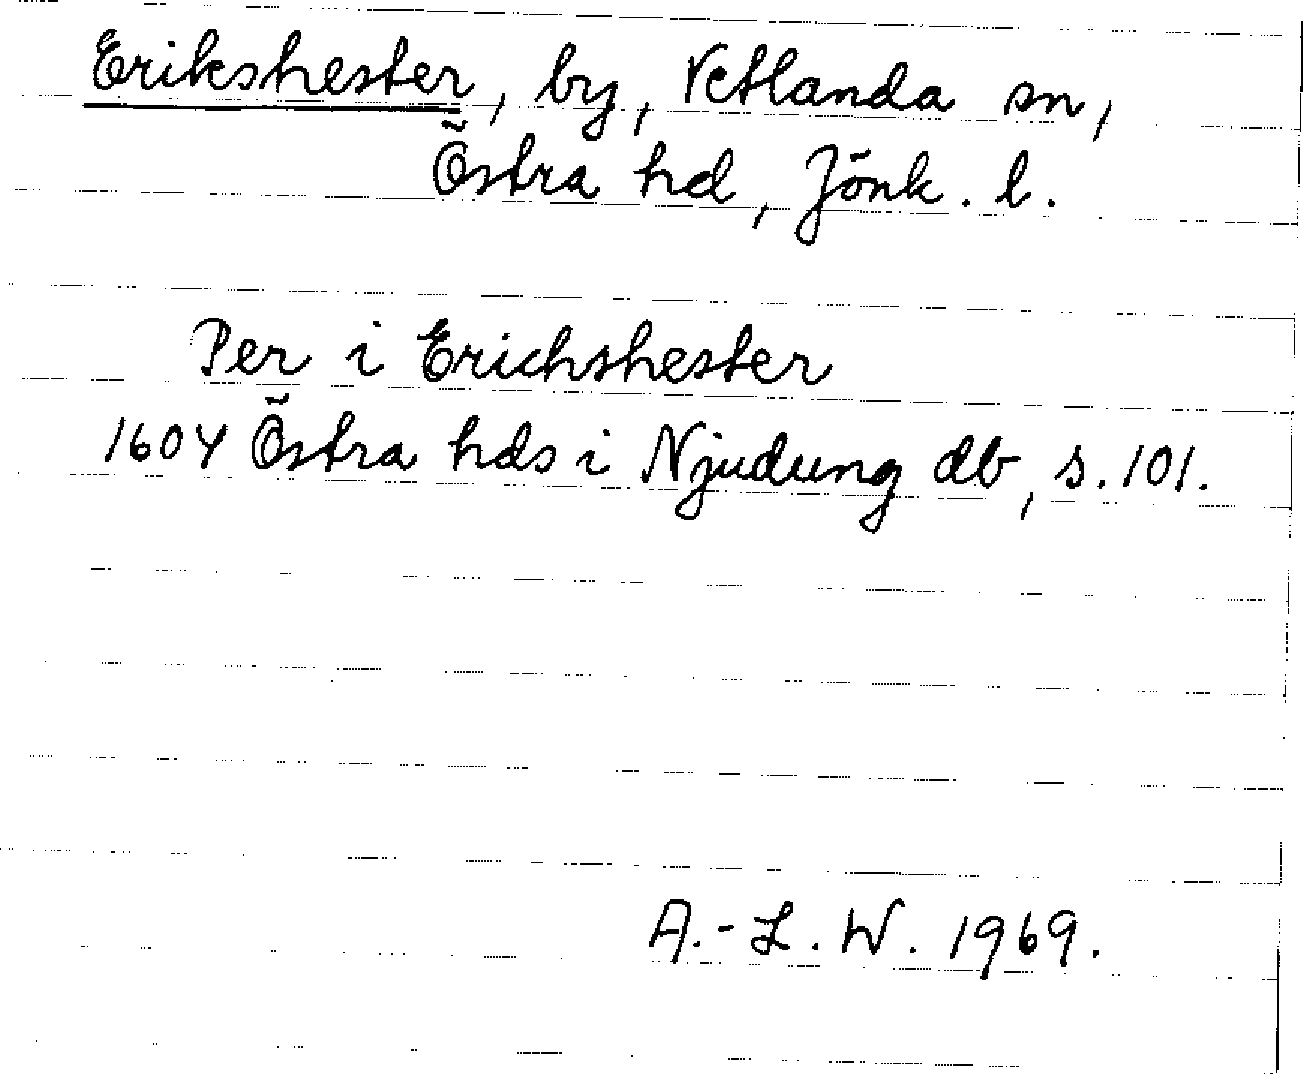 Erikshester, by, Vetlanda sn,
Östra hd, Jönk. l.
Per i Erichshester
1604 Östra hds i Njudung db, s. 101.
A.-L. W. 1969.